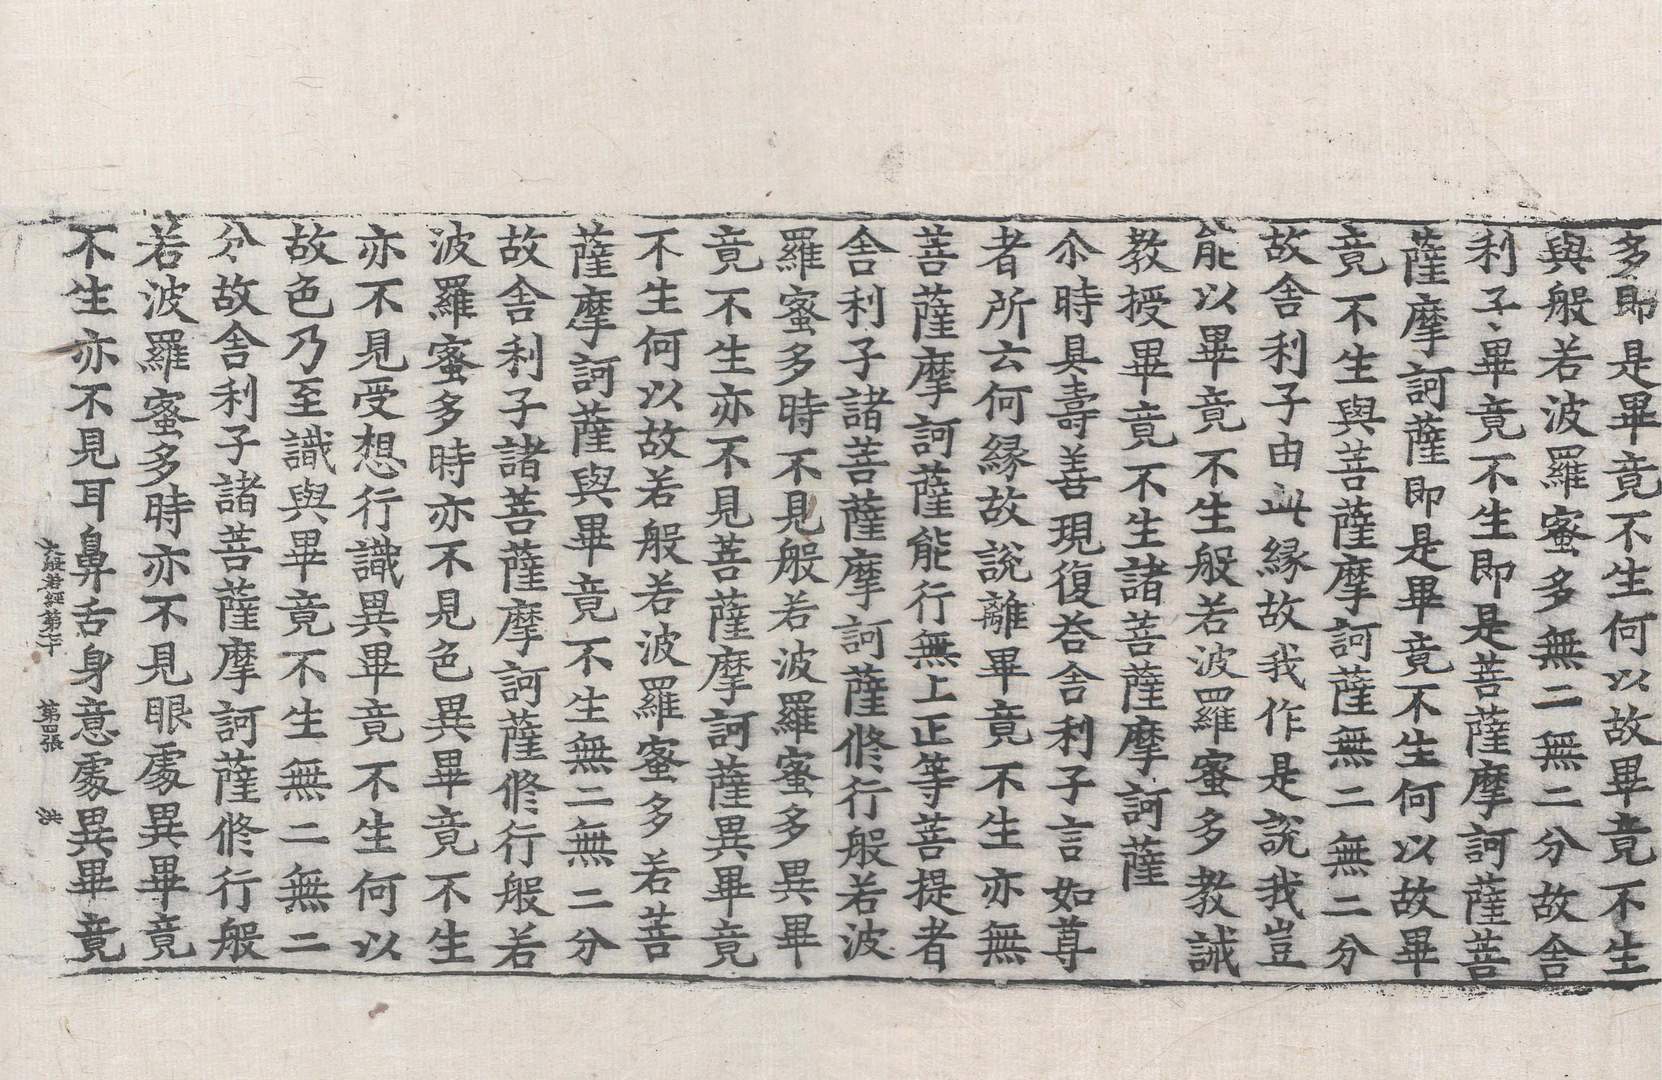 多即是畢竟不生何以故畢竟不生
與般若波羅蜜多無二無二分故舍
利子畢竟不生即是菩薩摩訶薩菩
薩摩訶薩即是畢竟不生何以故畢
竟不生與菩薩摩訶薩無二無二分
故舍利子由此緣故我作是說我豈
能以畢竟不生般若波羅蜜多教誡
教授畢竟不生諸菩薩摩訶薩
尒時具壽善現復荅舍利子言如尊
者所云何緣故說離畢竟不生亦無
菩薩摩訶薩能行無上正等菩提者
舍利子諸菩薩摩訶薩修行般若波
羅蜜多時不見般若波羅蜜多異畢
竟不生亦不見菩薩摩訶薩異畢竟
不生何以故若般若波羅蜜多若菩
薩摩訶薩與畢竟不生無二無二分
故舍利子諸菩薩摩訶薩修行般若
波羅蜜多時亦不見色異畢竟不生
亦不見受想行識異畢竟不生何以
故色乃至識與畢竟不生無二無二
分故舍利子諸菩薩摩訶薩修行般
若波羅蜜多時亦不見眼處異畢竟
不生亦不見耳鼻舌身意處異畢竟
大般若經第七十 第四張 洪